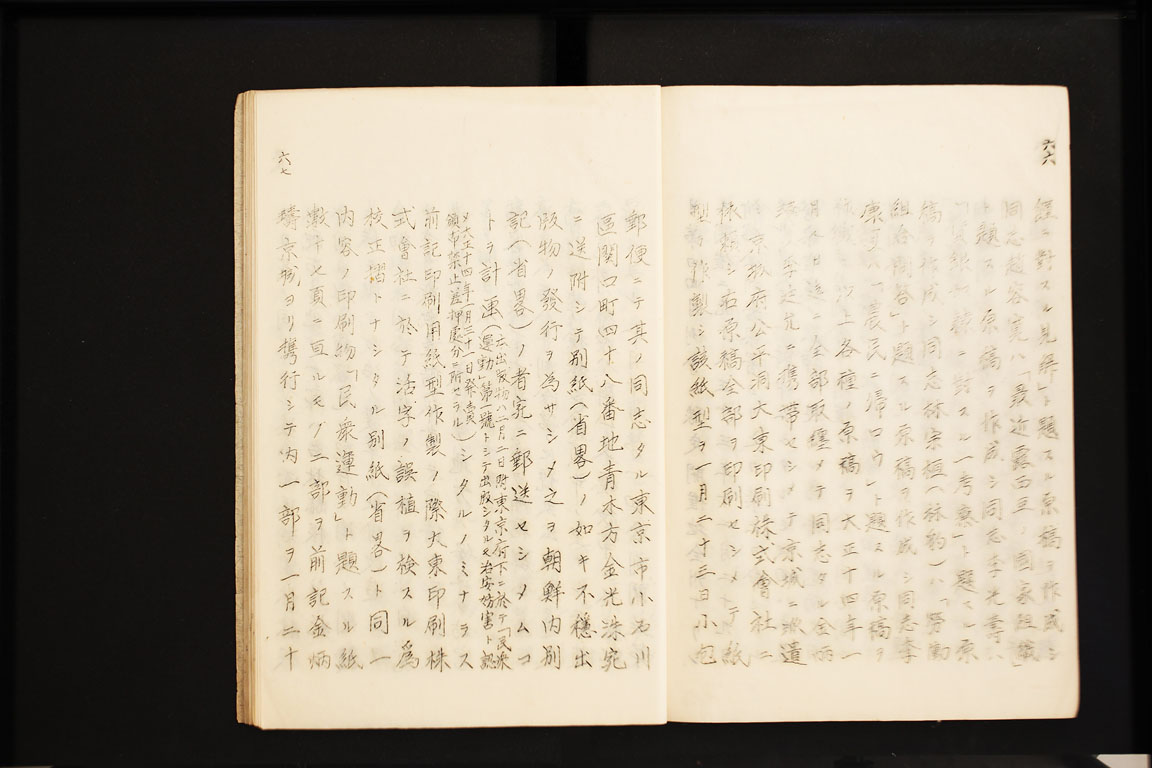 六六
經ニ對スル見解」ト題スル原稿ヲ作成シ
同志趙容寛ハ「最近露西亞ノ國家組織」
ト題スル原稿ヲ作成シ同志李光壽ハ
ニ對スル一考察」ト題スル原
稿ヲ作成シ同志林宗桓(林豹)ハ「勞働
組合問答」ト題スル原稿ヲ作成シ同志李
康夏ハ「農民ニ帰ロウ」ト題スル原稿ヲ
作成シ以上各種ノ原稿ヲ大正十四年一
月ニ全部取纒メテ同志タル金炳
ニ携帶セシメテ京城ニ派遣
シ京城府公平洞大東印刷株式會社ニ
依頼シ右原稿全部ヲ印刷セシメテ紙
型ヲ作製シ該紙型ヲ一月二十三日小包
六七
郵便ニテ其ノ同志タル東京市小石川
區関口町四十八番地青木方金光洙宛
ニ送附シテ別紙(省畧)ノ如キ不穩出
版物ノ發行ヲ為サシメ之ヲ朝鮮内別
記(省畧)ノ者宛ニ郵送セシメムコ
トヲ計画(右出版物ハ三月二日附東京府下ニ於テ「民衆
運動」第一號トシテ出版シタルモ治安妨害ト認
メ大正十四年一月三十一日発賣
頒布禁止差押處分ニ附セラル)シタルノミナラス
前記印刷用紙型作製ノ際大東印刷株
式會社ニ於テ活字ノ誤植ヲ検スル為
校正摺トナシタル別紙(省畧)ト同一
内容ノ印刷物「民衆運動」ト題スル紙
數十七頁ニ亘ルモノ二部ヲ前記金炳
璹京城ヨリ携行シテ内一部ヲ一月二十